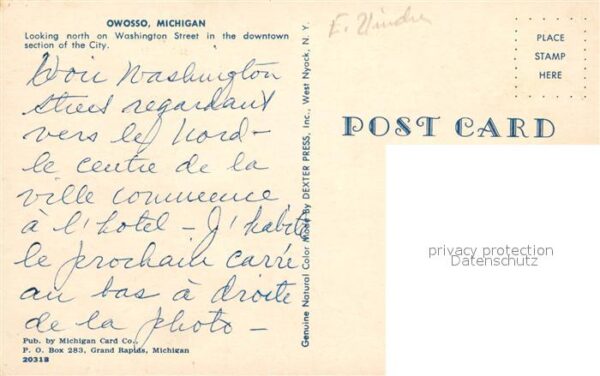 OWOSSO, MICHIGAN
Looking north on Washington Street in the downtown
section of the City.
Voir Washington
street regardant
vers le Nord -
le centre de la
ville commence
à l'hotel - J'habite
le prochain carré
au bas à droite
de la photo -
Pub. by Michigan Card Co.,
P. O. Box 283, Grand Rapids, Michigan
20318
Genuine Natural Color Made By DEXTER PRESS, Inc., West Nyack, N. Y.
E.
PLACE
STAMP
HERE
POST CARD
privacy protection
Datenschutz